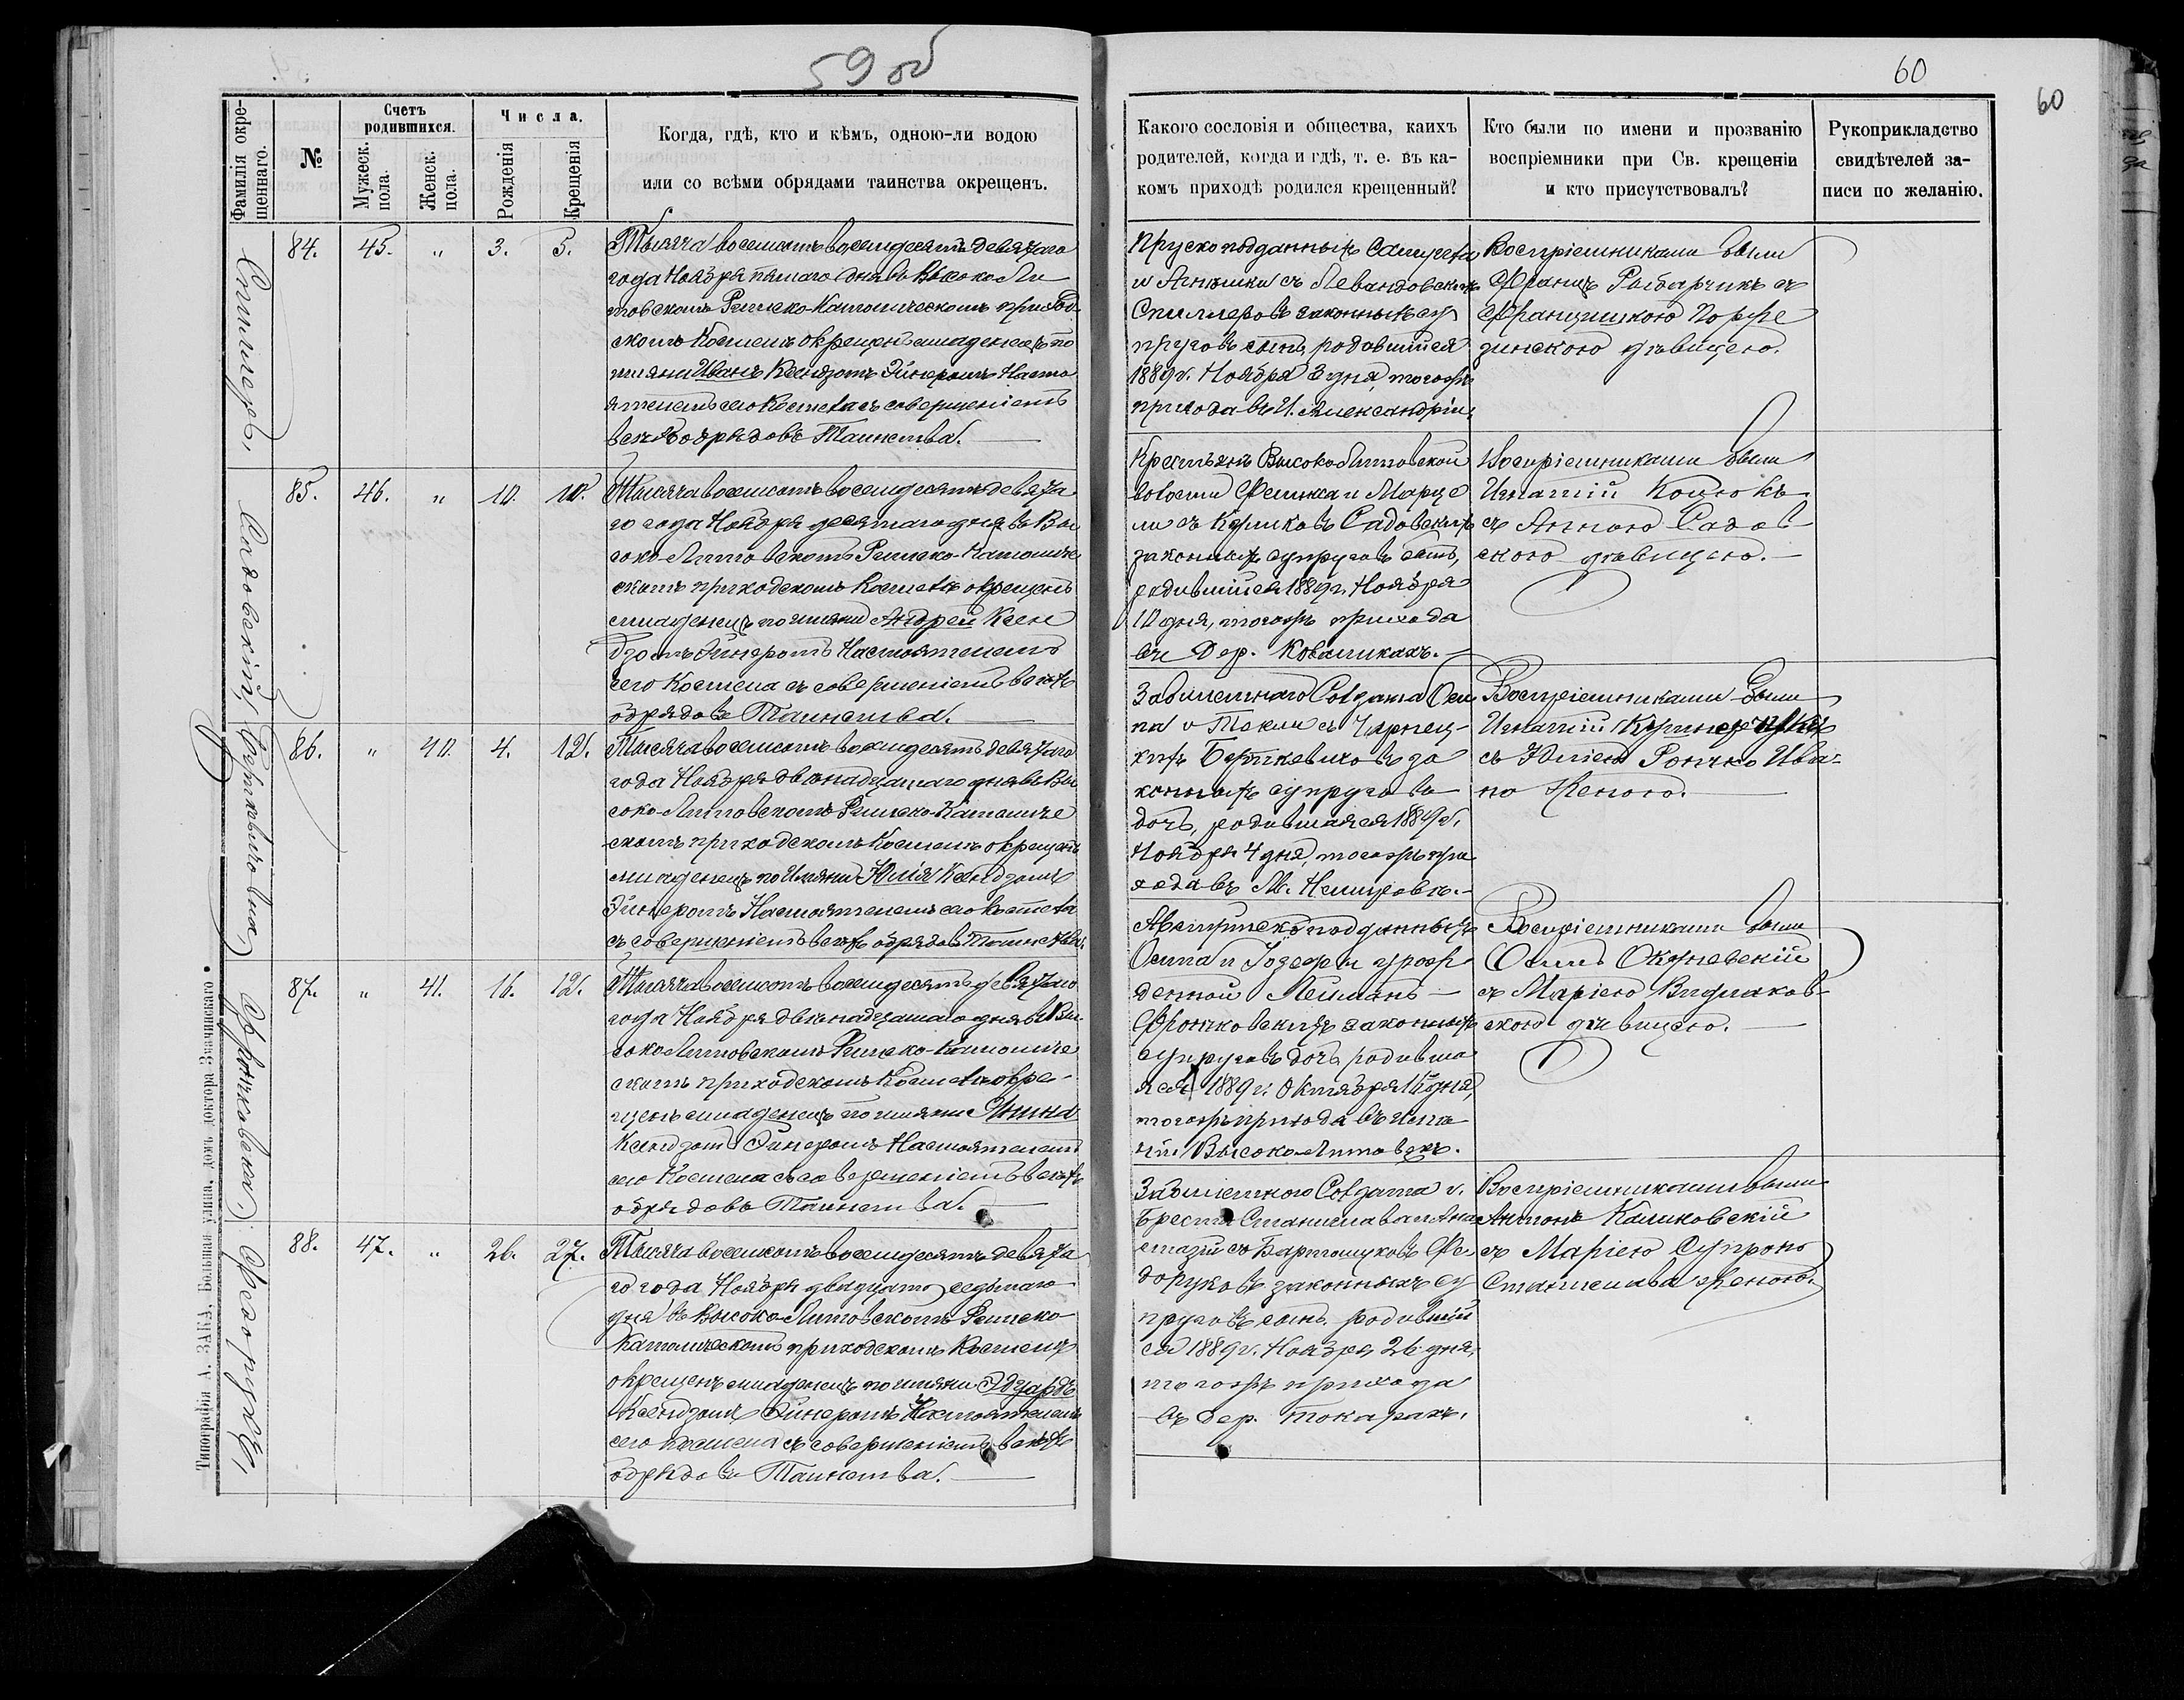 59 об
Фамилія окре-
щеннаго.
№
Счетъ
родившихся.
Мужеск.
пола.
Женск.
пола.
Числа.
Рожденія
Крещенія
Когда, гдѣ, кто и кѣмъ, одною-ли водою
или со всѣми обрядами таинства окрещенъ.
Спиллеръ,
84. 45. " 3. 5.
Тысяча восемьсотъ восемьдесятъ девятаго
года Ноября пятаго дня въ Высоко Ли
товскомъ Римско-Католическомъ приход
скомъ Костелѣ окрещенъ младенецъ по
имяни Иванъ Ксендзомъ Эйнеромъ Насто
ятелемъ сего Костела съ совершеніемъ
всѣхъ обрядовъ Таинства.
Садовскій,
85. 46. " 10. 10.
Тысяча восемьсотъ восемьдесятъ девята
го года Ноября десятаго дня въ Вы
соко-Литовскомъ Римско-Католиче
скомъ приходскомъ Костелѣ окрещенъ
младенецъ по имяни Андрей Ксен
дзомъ Эйнеромъ Настоятелемъ
сего Костела съ совершеніемъ всѣхъ
обрядовъ Таинства.
86. " 40. 4. 12.
Тысяча восемьсотъ восемьдесятъ девятаго
года Ноября двѣнадцатаго дня въ Вы
соко-Литовскомъ Римско-Католиче
скомъ приходскомъ Костелѣ окрещенъ
младенецъ по имяни Юлія Ксендзомъ
Эйнеромъ Настоятелемъ сего Костела
съ совершеніемъ всѣхъ обрядовъ Таинства.
Фрончковская,
87. " 41. 16. 12.
Тысяча восемьсотъ восемьдесятъ девятаго
года Ноября двѣнадцатаго дня въ Вы
соко Литовскомъ Римско-Католиче
скомъ приходскомъ Костелѣ окре-
щенъ младенецъ по имяни Анна
Ксендзомъ Эйнеромъ Настоятелемъ
сего Костела съ совершеніемъ всѣхъ
обрядовъ Таинства.
Федорукъ,
88. 47. " 26. 27.
Тысяча восемьсотъ восемьдесятъ девята
го года Ноября двадцать седьмаго
дня въ Высоко-Литовскомъ Римско
Католическомъ приходскомъ Костелѣ
окрещенъ младенецъ по имяни Эдуардъ
Ксендзомъ Эйнеромъ Настоятелемъ
сего Костела съ совершеніемъ всѣхъ
обрядовъ Таинства.
Типографія А. ЗАКА, Большая улица, домъ доктора Значинскаго.
60
60
Какого сословія и общества, каихъ
родителей, когда и гдѣ, т. е. въ ка-
комъ приходѣ родился крещенный?
Кто были по имени и прозванію
воспріемники при Св. крещеніи
и кто присутствовалъ?
Рукоприкладство
свидѣтелей за-
писи по желанію.
Прускоподданныхъ Самуела
и Агнѣшки съ Левандовскихъ
Спиллеровъ законныхъ су
пруговъ сынъ, родившійся
1889 г. Ноября 3 дня, тогожъ
прихода въ И. Александріи.
Воспріемниками были
Францъ Рыбарчикъ съ
Францишкою
дѣвицею.
Крестьянъ Высоко Литовской
волости Феликса и Марце
ли съ Садовскихъ
законныхъ супруговъ сынъ,
родившійся 1889 г. Ноября
10 дня, тогожъ прихода
въ Дер. Коваликахъ.
Воспріемниками были
Игнатій Коцюкъ
съ Анною Садов-
скою дѣвицею.
Забилетнаго Солдата Оси
па и Текли съ Чарнец-
кихъ за
конныхъ супруговъ
дочь, родившаяся 1889 г.
Ноября 4 дня, тогожъ при
хода въ М. Немировкѣ.
Воспріемниками были
Игнатій
съ Юліею Рончко Ива-
но женою.
Австрійскоподданныхъ
Осипа и Іозефы урож
денной Лейманъ
Фрончковскихъ законныхъ
супруговъ дочь родивша
яся 1889 г. Октября 16 дня,
тогожъ прихода въ имѣ
ніи Высоко-Литовскѣ.
Воспріемниками были
Осипъ Окуневскій
съ Маріею
скою дѣвицею.
Забилетного Солдата г.
Бреста Станислава и Ана
стазіи съ Бартошуковъ Фе
доруковъ законныхъ су
пруговъ сынъ родившій
ся 1889 г. Ноября 26 дня,
тогожъ прихода
въ дер. Токарахъ.
Воспріемниками были
Антонъ Каликовскій
съ Маріею Супронъ
Станислава женою.